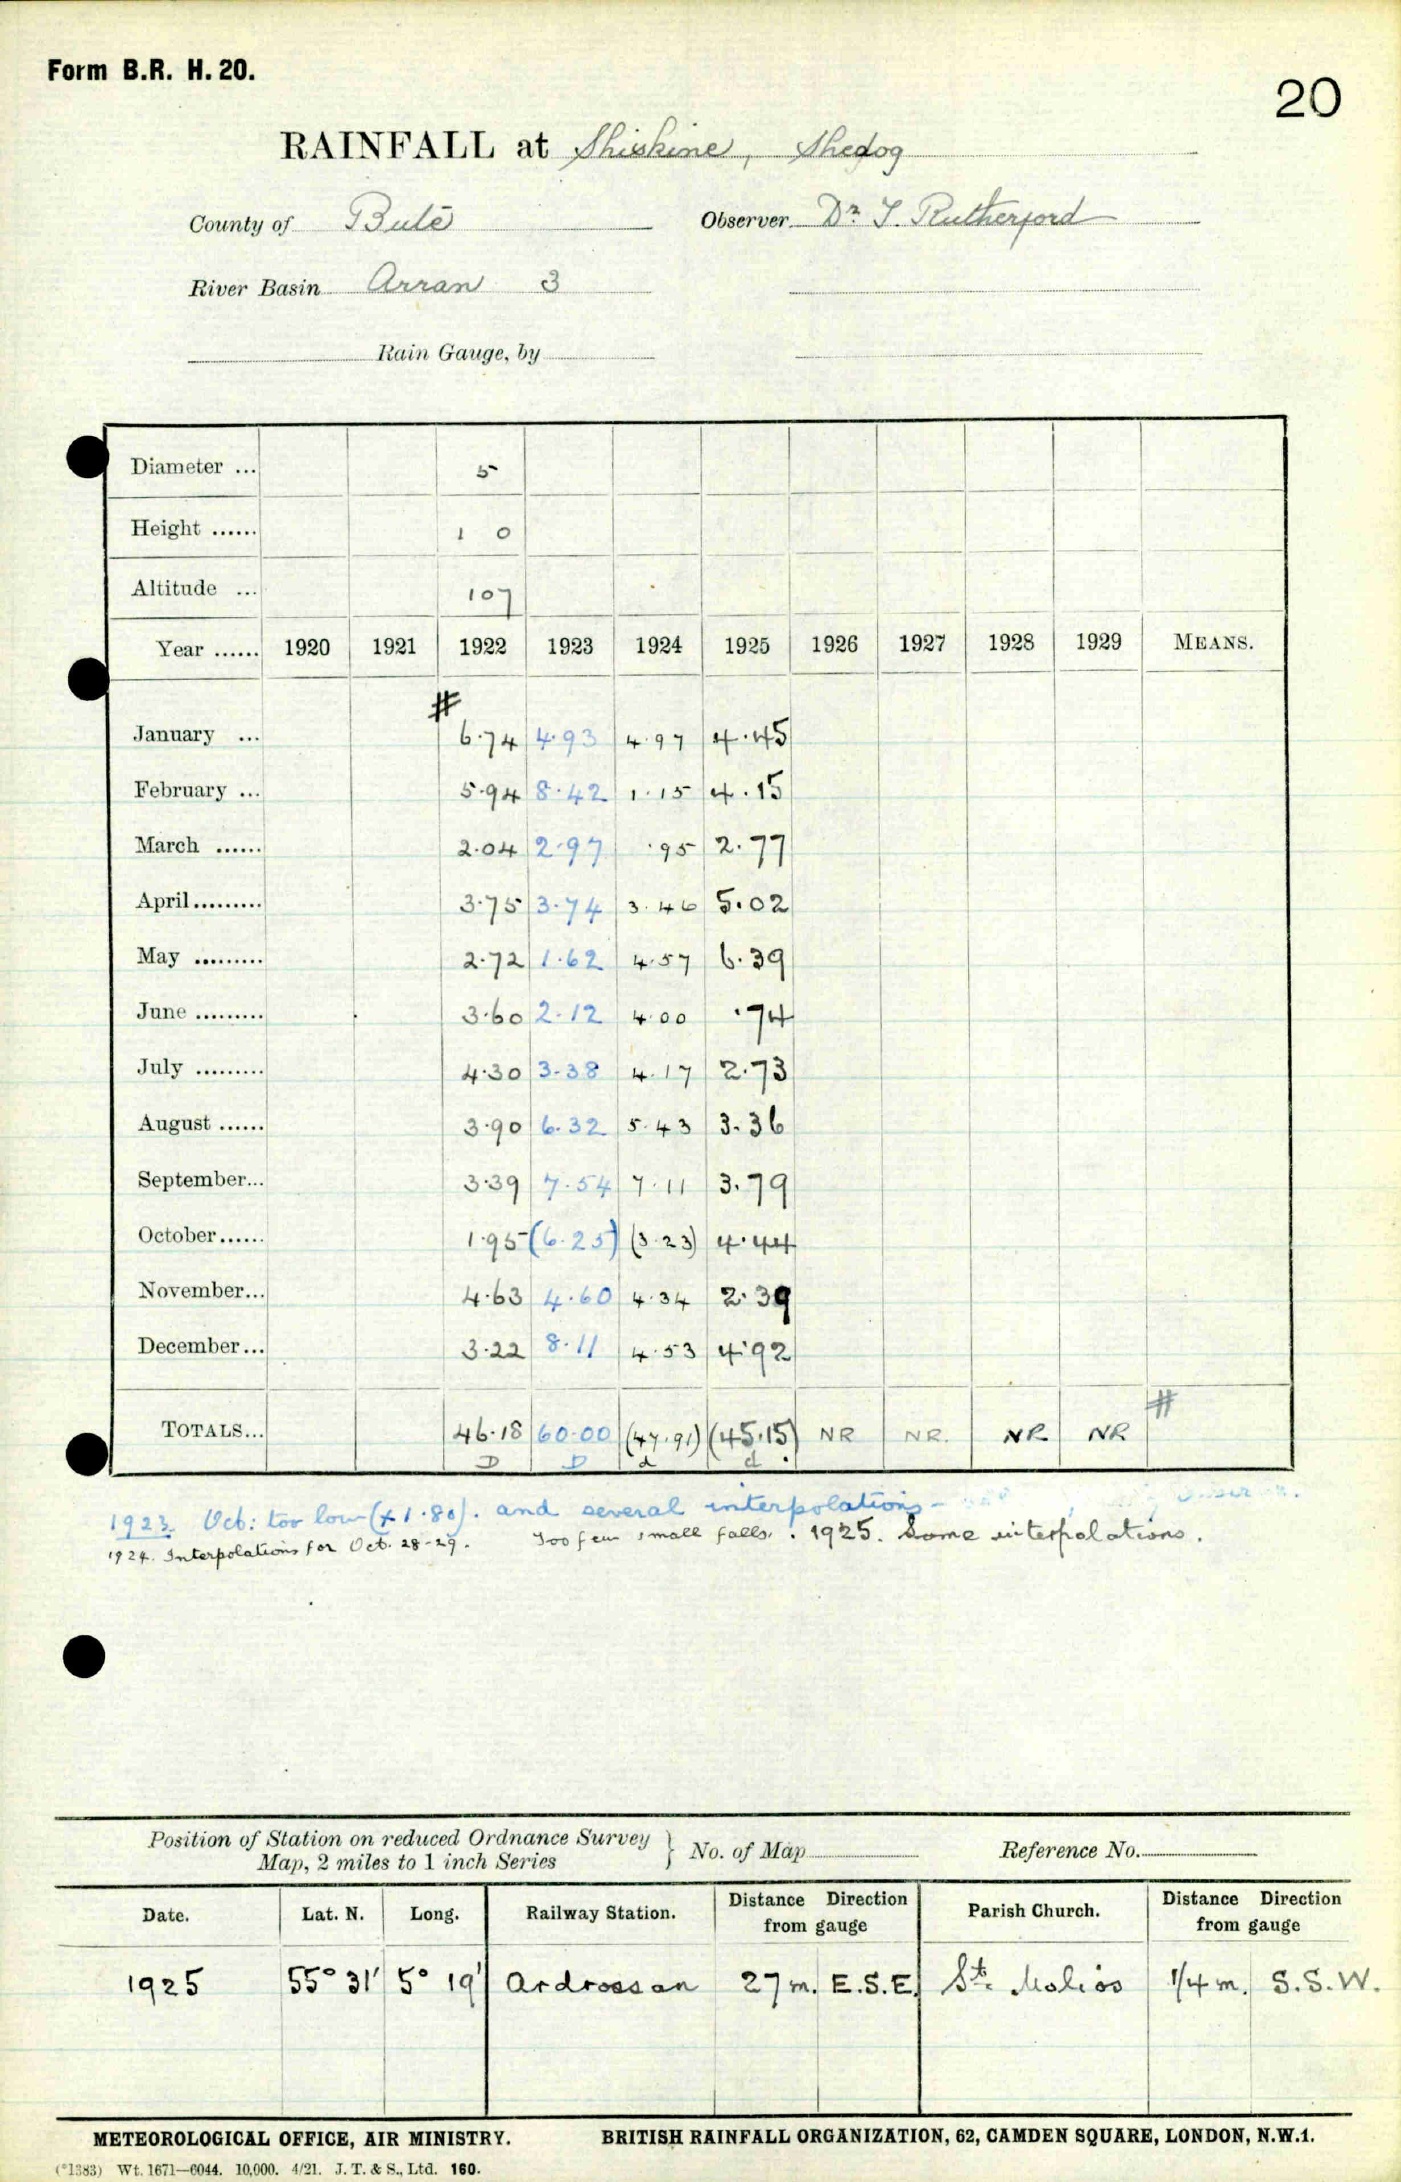 Form B.R. H. 20.
20
RAINFALL at Shiskine, Shedog
County of Bute Observer Dr. J. Rutherford
River Basin Arran 3
Rain Gauge, by
Diameter ... 5
Height ...... 1 0
Altitude ... 107
Year ...... 1920 1921 1922 1923 1924 1925 1926 1927 1928 1929 MEANS.
#
January ... 6.74 4.93 4.97 4.45
February ... 5.94 8.42 1.15 4.15
March ...... 2.04 2.97 .95 2.77
April ......... 3.75 3.74 3.46 5.02
May ......... 2.72 1.62 4.57 6.39
June ......... 3.60 2.12 4.00 .74
July ......... 4.30 3.38 4.17 2.73
August ...... 3.90 6.32 5.43 3.36
September... 3.39 7.54 7.11 3.79
October...... 1.95 (6.25) (3.23) 4.44
November... 4.63 4.60 4.34 2.39
December... 3.22 8.11 4.53 4.92
#
TOTALS... 46.18 60.00 (47.91) (45.15) NR NR. NR NR
D D d d
1923 Oct: too low (+1.80). and several interpolations -
1924. Interpolations for Oct. 28-29. Too few small falls. 1925. Some interpolations.
Position of Station on reduced Ordnance Survey
Map, 2 miles to 1 inch Series } No. of Map Reference No.
Date. Lat. N. Long. Railway Station. Distance Direction from gauge Parish Church. Distance Direction from gauge
1925 55° 31' 5° 19' Ardrossan 27 m. E.S.E. St. Molios 1/4 m. S.S.W.
METEOROLOGICAL OFFICE, AIR MINISTRY. BRITISH RAINFALL ORGANIZATION, 62, CAMDEN SQUARE, LONDON, N.W.1.
(*1383) Wt. 1671—6044. 10,000. 4/21. J. T. & S., Ltd. 160.